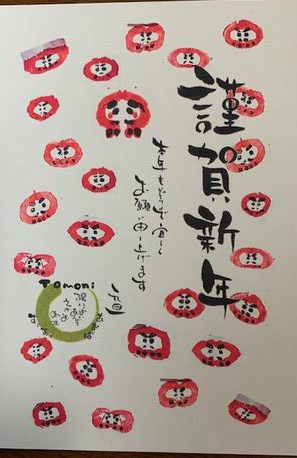 謹賀新年
本年もどうぞ宜しく
お願い申し上げます
元旦
Tomoni